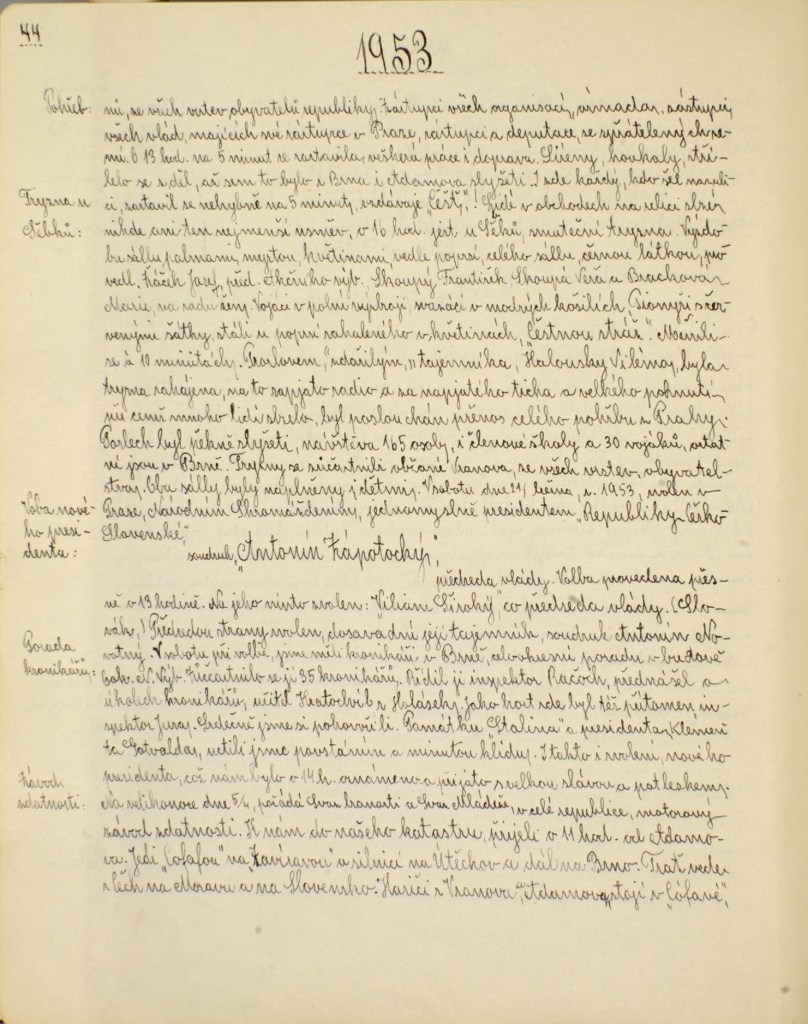 44
1953
Pohřeb: nů, se všech vrstev obyvatelů republiky. Zástupci všech organisací, armáda, zástupci,
všech vlád, majících své zástupce v Praze, zástupci a deputace, se spřátelených ze-
mí. O 13 hod. na 5 minut se zastavila, veškerá práce i doprava. Sirény, houkaly, stří-
lelo se z děl, až sem to bylo z Brna i Adamova slyšeti. I zde každý, kdo šel na uli-
Tryzna u ci, zastavil se nehybně na 5 minut, vzdávaje „Čest,"! Lidé v obchodech na ulici slze,
Sčbků: nikde ani ten nejmenší úsměv, o 16 hod. jest u smuteční tryzna. Výzdo-
ba sálu palmami, myrtou, květinami, vedle poprsí, celého sálu, černou látkou, pro-
vedl, Josef, před. Akčního výb. Skoupý František Skoupá Věra a Brackova
Marie, na radu ženy. Vojáci v polní výzbroji, svazáci v modrých košilích, Pionýři s čer-
venými šátky, stáli u poprsí zahaleného v květinách, „Čestnou stráž". Měnili
se á 10 minutách. Proslovem, zdařilým, tajemníka, Halousky Viléma, byla
tryzna zahájena, na to zapjato radio a za napjatého ticha a velkého pohnutí,
při čemž mnoho lidí slzelo, byl poslouchán přenos celého pohřbu z Prahy.
Poslech byl pěkně slyšeti, návštěva 165 osob, i členové školy a 30 vojáků, ostat-
ní jsou v Brně. Tryzny se súčastnili občané Vranova, se všech vrstev, obyvatel-
stva. Oba sály byly naplněny i dětmi. V sobotu dne 21/ března, r. 1953, zvolen v
Volba nové- Praze, Národním Shromážděním, jednomyslně presidentem „Republiky Česko-
ho presi- Slovenské,"
denta: soudruh, „Antonín Zápotocký,"
předseda vlády. Volba provedena přes-
ně v 13 hodině. Na jeho místo zvolen: „Viliam Široký," co předseda vlády. (Slo-
vák,) Předsedou strany zvolen, dosavadní její tajemník, soudruh Antonín No-
Porada votný. V sobotu při volbě, jsme měli kronikáři v Brně, celookresní poradu v budově
kronikářů: Okr. N. Výb. Zúčastnilo se jí 35 kronikářů. Řídil ji inspektor Račoch, přednášel o
úkolech kronikářů, učitel z Jako host zde byl též přítomen in-
spektor Juraj. Srdečně jsme si pohovořili. Památku „Stalina" a presidenta, Klemen-
ta Gotvalda, uctili jsme povstáním a minutou klidu. I takto i zvolení, nového
presidenta, což nám bylo o 14 h. oznámeno a přijato s velkou slávou a potleskem.
Závod Na velikonoce dne 5/4, pořádá Svaz brannosti a Svaz Mládeže, v celé republice, motorový
zdatnosti: závod zdatnosti. K nám do našeho katastru, přijeli o 11 hod. od Adamo-
va. Jedi „Cófafou" na „Kavíravou" a silnicí na Útěchov a dál na Brno. Trať vede
z Čech na Moravu a na Slovensko. Hasiči z Vranova a Adamova, stojí v „Cófavě",